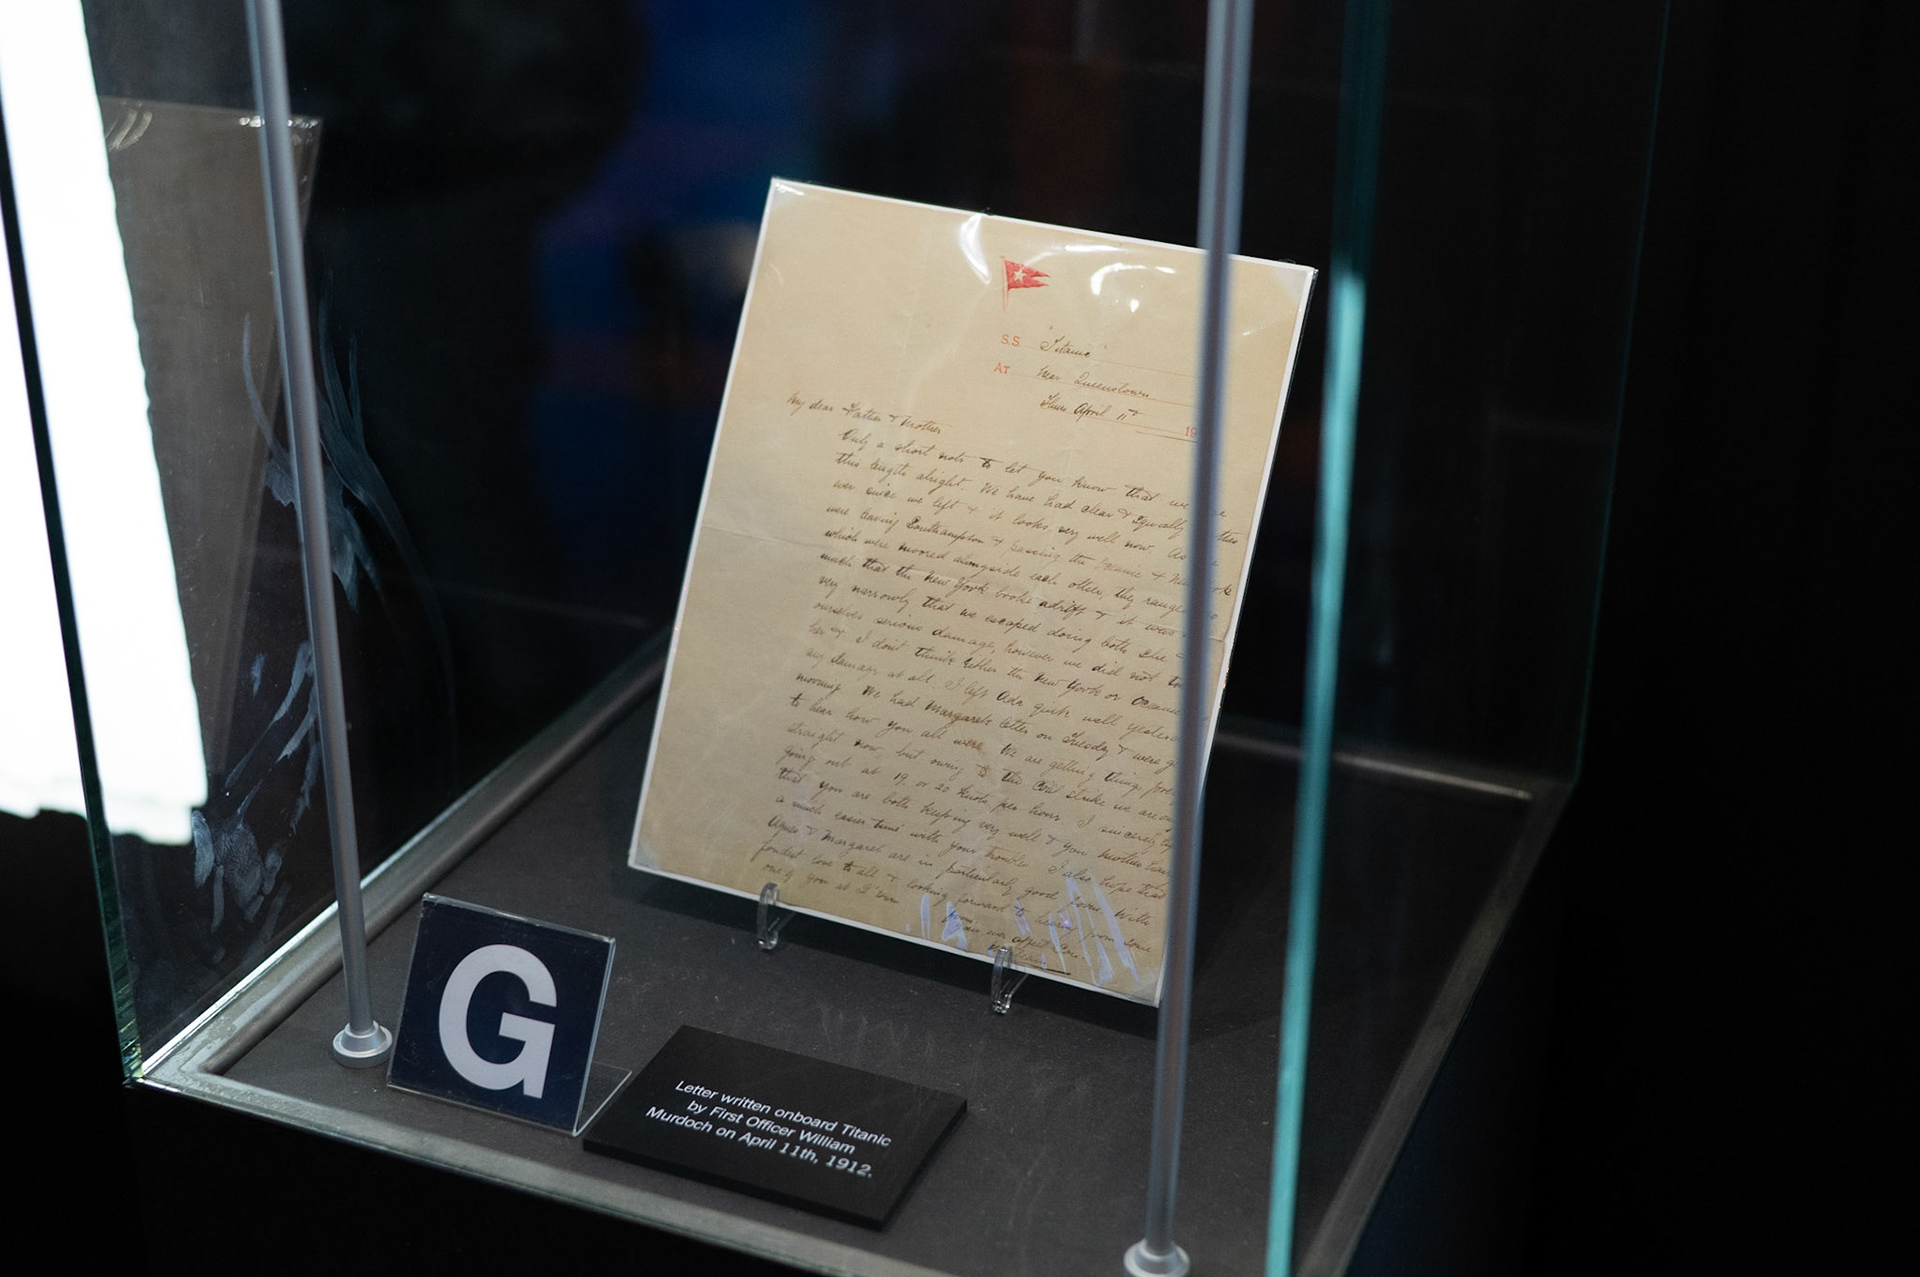 S.S. "Titanic"
AT Near Queenstown.
Thurs April 11th
19
My dear Father & Mother
Only a short note to let you know that we
this length alright. We have had clear & equally
ever since we left & it looks very well now. As
were leaving Southampton & passing the Oceanic & New York
which were moored alongside each other, they ranged so
much that the New York broke adrift & it was
very narrowly that we escaped doing both she &
ourselves serious damage, however we did not
her & I don't think either the New York or Oceanic
any damage at all. I left Ada quite well
morning. We had Margarets letter on Tuesday & were
to hear how you all were. We are getting things
straight now, but owing to the Coal strike we are only
going out at 19 or 20 knots per hour. I sincerely
that you are both keeping very well & you mother
a much easier time with your trouble. I also hope that
Agnes & Margaret are in particularly good form. With
fondest love to all & looking forward to hearing from some
one of you at
from
your ever affect son.
G
Letter written onboard Titanic
by First Officer William
Murdoch on April 11th, 1912.